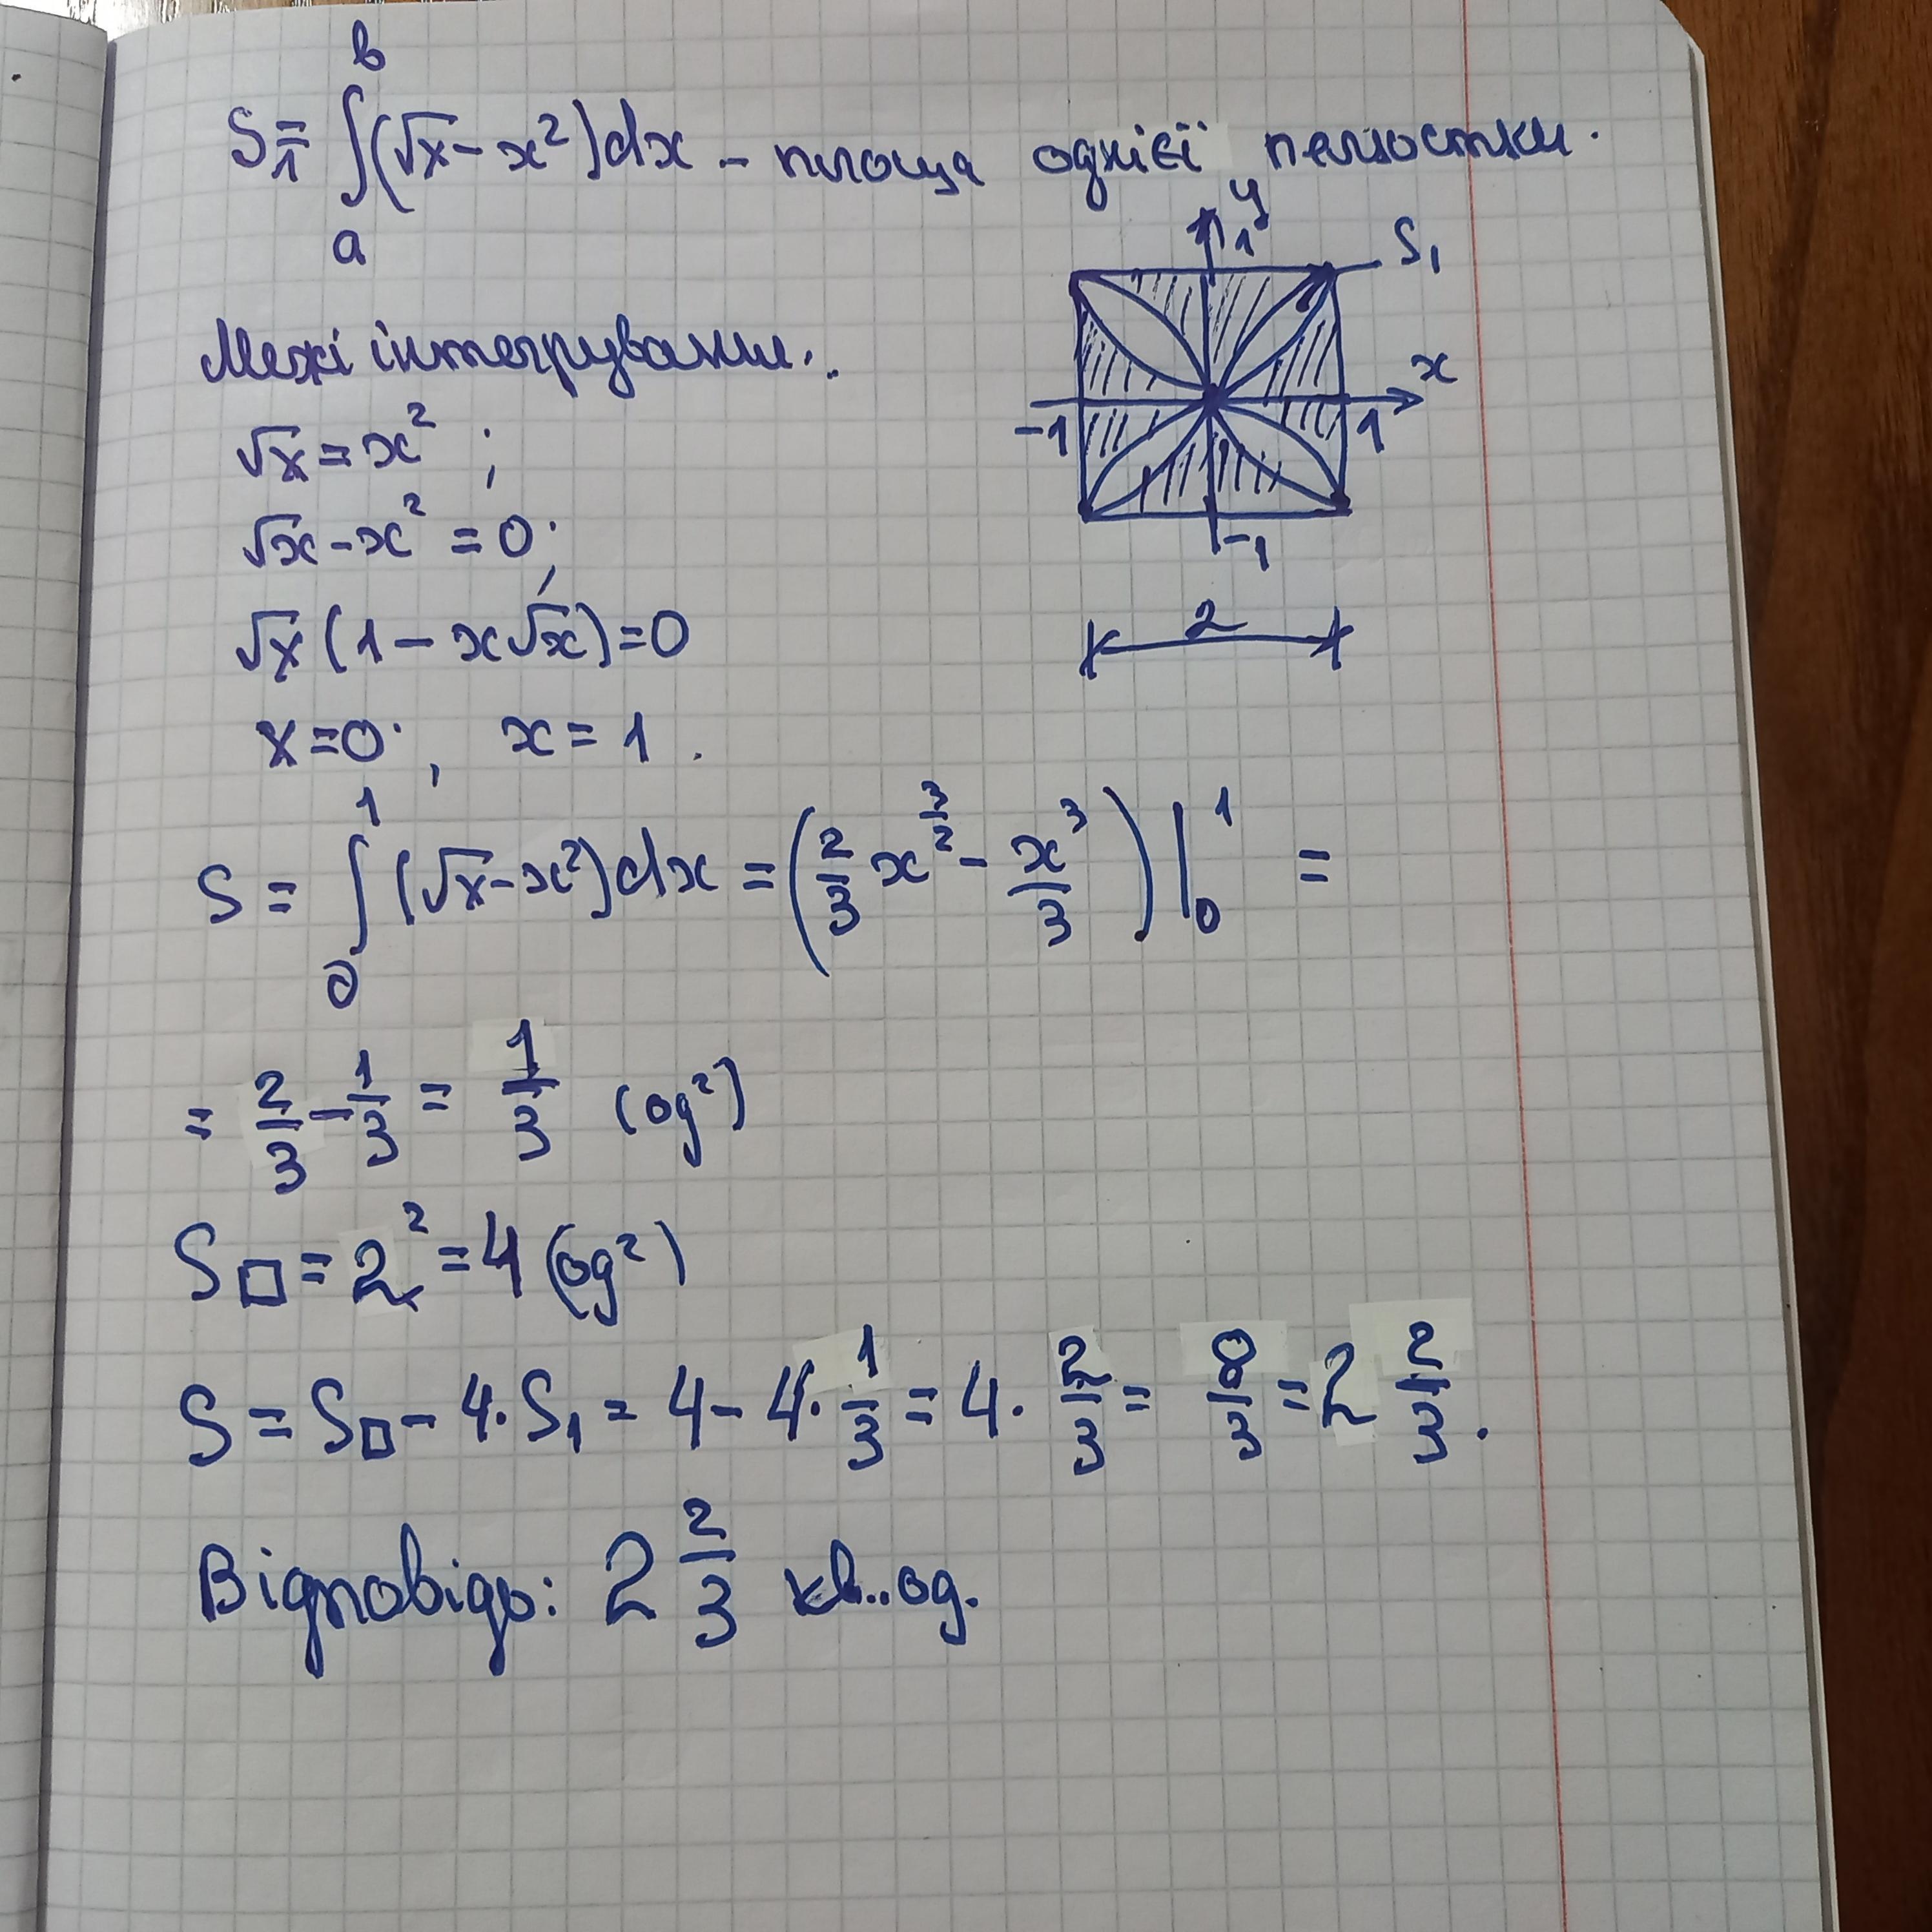 S₁ = ∫ₐᵇ (√x - x²)dx - площа однієї пелюстки.
y
1
S₁
x
-1
1
-1
2
Межі інтегрування:
√x = x² ;
√x - x² = 0;
√x (1 - x√x) = 0
x = 0; x = 1.
S = ∫₀¹ (√x - x²)dx = (2/3 x^(3/2) - x³/3) |₀¹ =
= 2/3 - 1/3 = 1/3 (од²)
S□ = 2² = 4 (од²)
S = S□ - 4·S₁ = 4 - 4·1/3 = 4·2/3 = 8/3 = 2 2/3.
Відповідь: 2 2/3 кв. од.